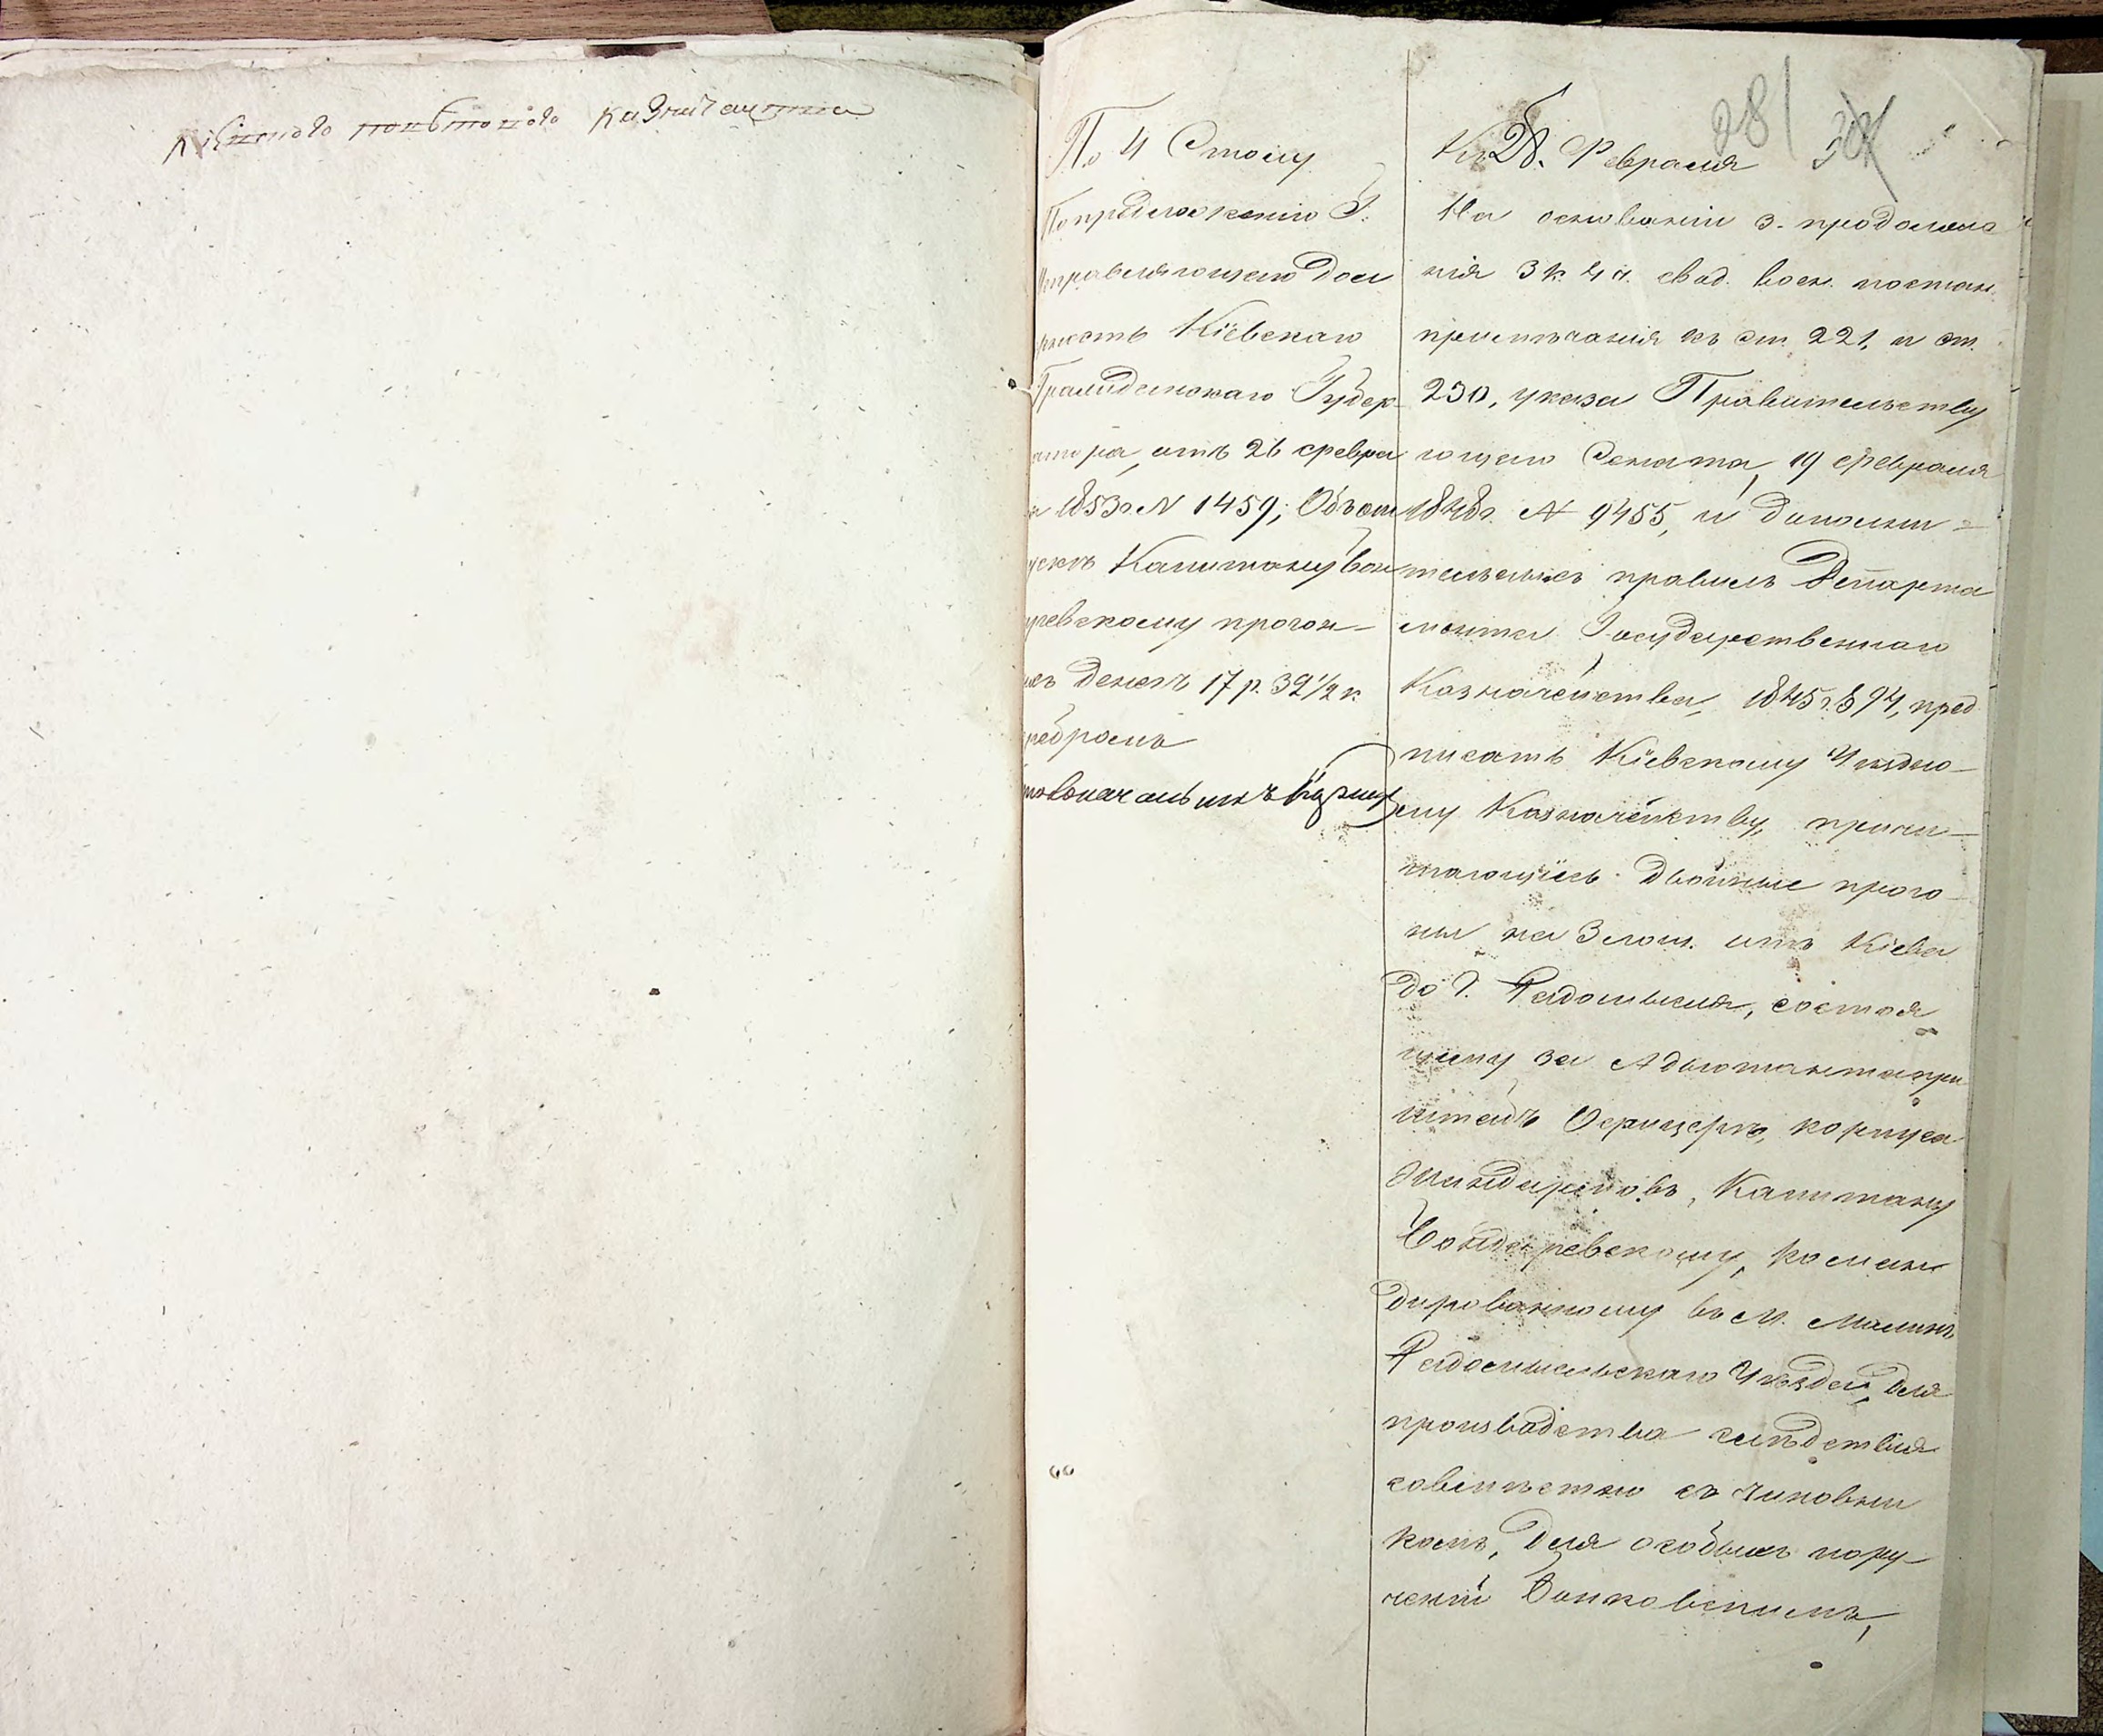 Кіевского повѣтового казначейства
28
По 4 Столу
По предложенію Г.
Управляющаго дол
жность Кіевскаго
Гражданскаго Губер-
натора, отъ 26 февра
ля 1853 г. N 1459; Объ от
пускѣ Капитану Бон
даревскому прогон-
ныхъ денегъ 17 р. 32½ к.
серебромъ
Столоначальникъ
Къ 28. Февраля
На основаніи 3. продолже
нія 3 к. 4 ч. свод. воен. постан.
примѣчанія къ ст. 221, и ст.
230, указа Правительству
ющаго Сената, 19 февраля
1848 г. N 9455, и дополни-
тельныхъ правилъ Департа
мента Государственнаго
Казначейства, 1845 г. § 94, пред
писать Кіевскому Уѣздно-
му Казначейству, причи-
тающіесь двойные прого-
ны на 3 лош. отъ Кіева
до г. Радомысля, состоя
щему за Адъютанта при
штабъ Офицерѣ, корпуса
Жандармовъ, Капитану
Бондаревскому, коман
дированному въ м. Малинъ
Радомысльскаго Уѣзда, для
производства слѣдствія
совмѣстно съ Чиновни
комъ, для особыхъ пору-
ченій